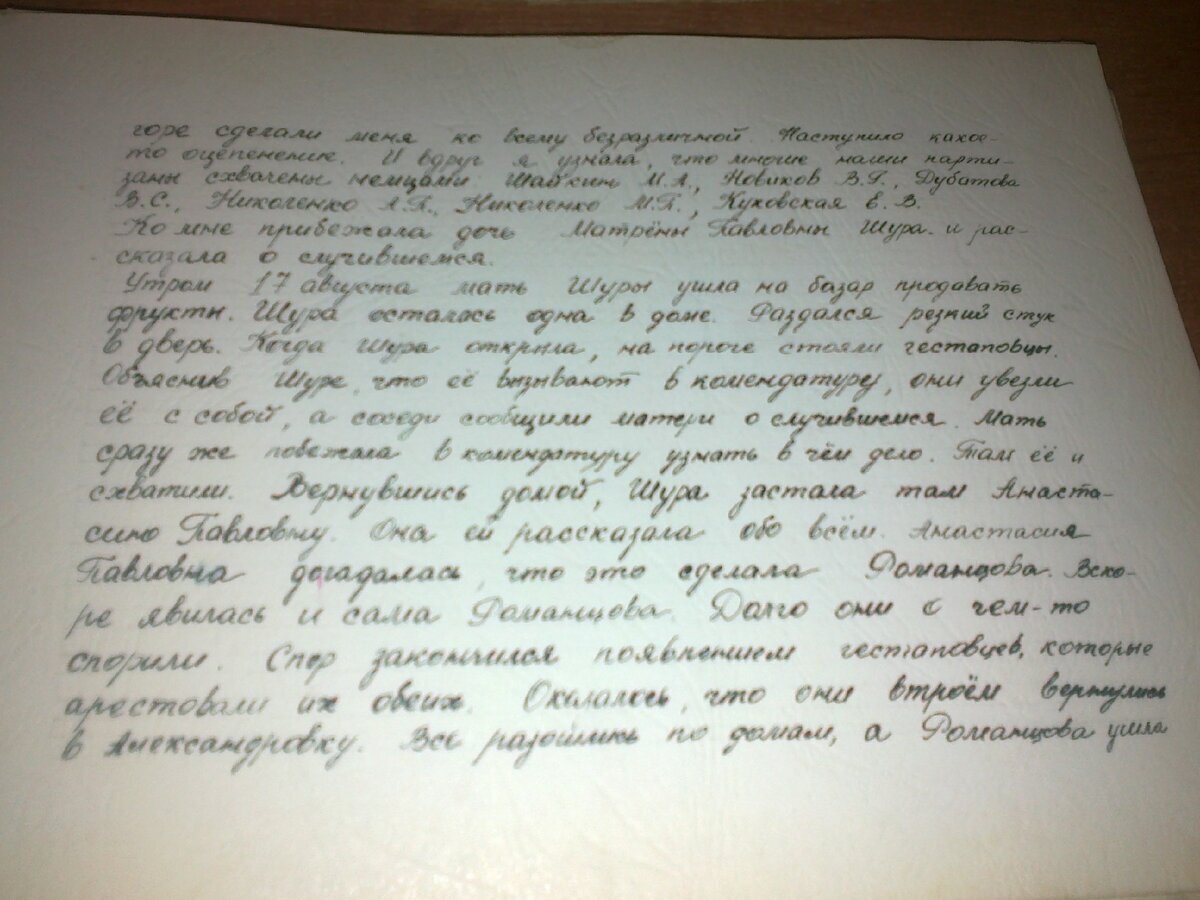 горе сделали меня ко всему безразличной. Наступило какое-
то оцепенение. И вдруг я узнала, что многие наши парти-
заны схвачены немцами: Шайкин М.А., Новиков В.Г., Дубатова
В.С., Николенко А.П., Николенко М.П., Куковская Е.В.
Ко мне прибежала дочь Матрёны Павловны Шура и рас-
сказала о случившемся.
Утром 17 августа мать Шуры ушла на базар продавать
фрукты. Шура осталась одна в доме. Раздался резкий стук
в дверь. Когда Шура открыла, на пороге стояли гестаповцы.
Объяснив Шуре, что её вызывают в комендатуру, они увезли
её с собой, а соседи сообщили матери о случившемся. Мать
сразу же побежала в комендатуру узнать в чём дело. Там её и
схватили. Вернувшись домой, Шура застала там Анаста-
сию Павловну. Она ей рассказала обо всём. Анастасия
Павловна догадалась, что это сделала Романцова. Вско-
ре явилась и сама Романцова. Долго они о чем-то
спорили. Спор закончился появлением гестаповцев, которые
арестовали их обеих. Оказалось, что они втроём вернулись
в Александровку. Все разошлись по домам, а Романцова ушла